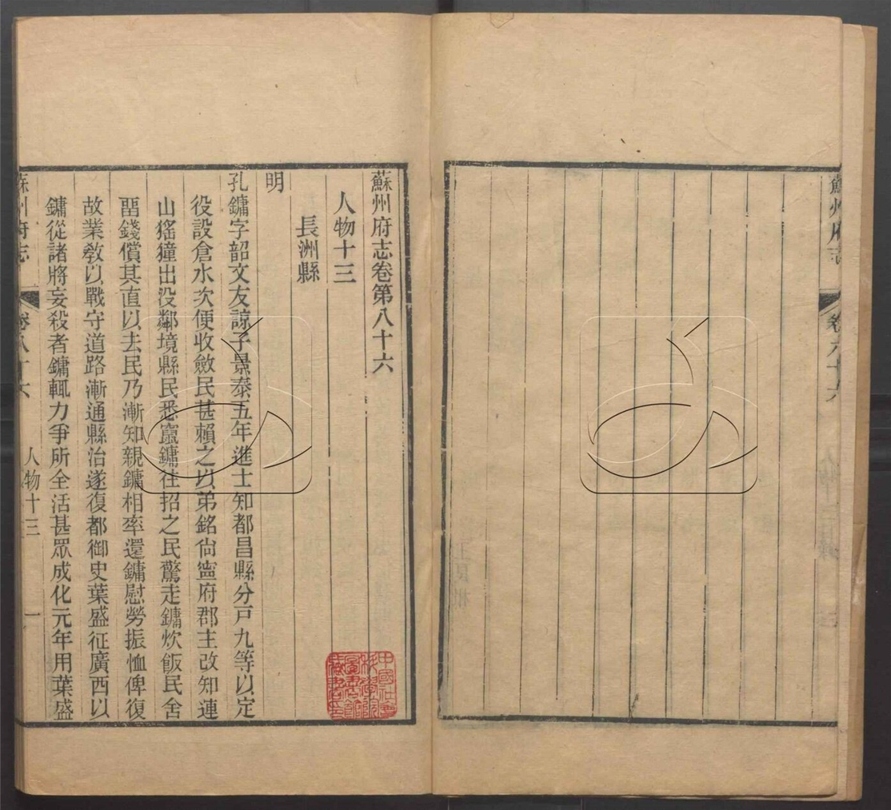 蘇州府志
卷六十六
蘇州府志卷第八十六
人物十三
長洲縣
明
孔鏞字韶文友諒子景泰五年進士知都昌縣分戸九等以定
役設倉水次便收斂民甚賴之以弟銘尙寧府郡主改知連
山猺獞出没鄰境縣民悉竄鏞往招之民驚走鏞炊飯民舍
畱錢償其直以去民乃漸知親鏞相率還鏞慰勞振恤俾復
故業敎以戰守道路漸通縣治遂復都御史葉盛征廣西以
鏞從諸將妄殺者鏞輒力爭所全活甚眾成化元年用葉盛
蘇州府志
卷八十六
人物十三
一